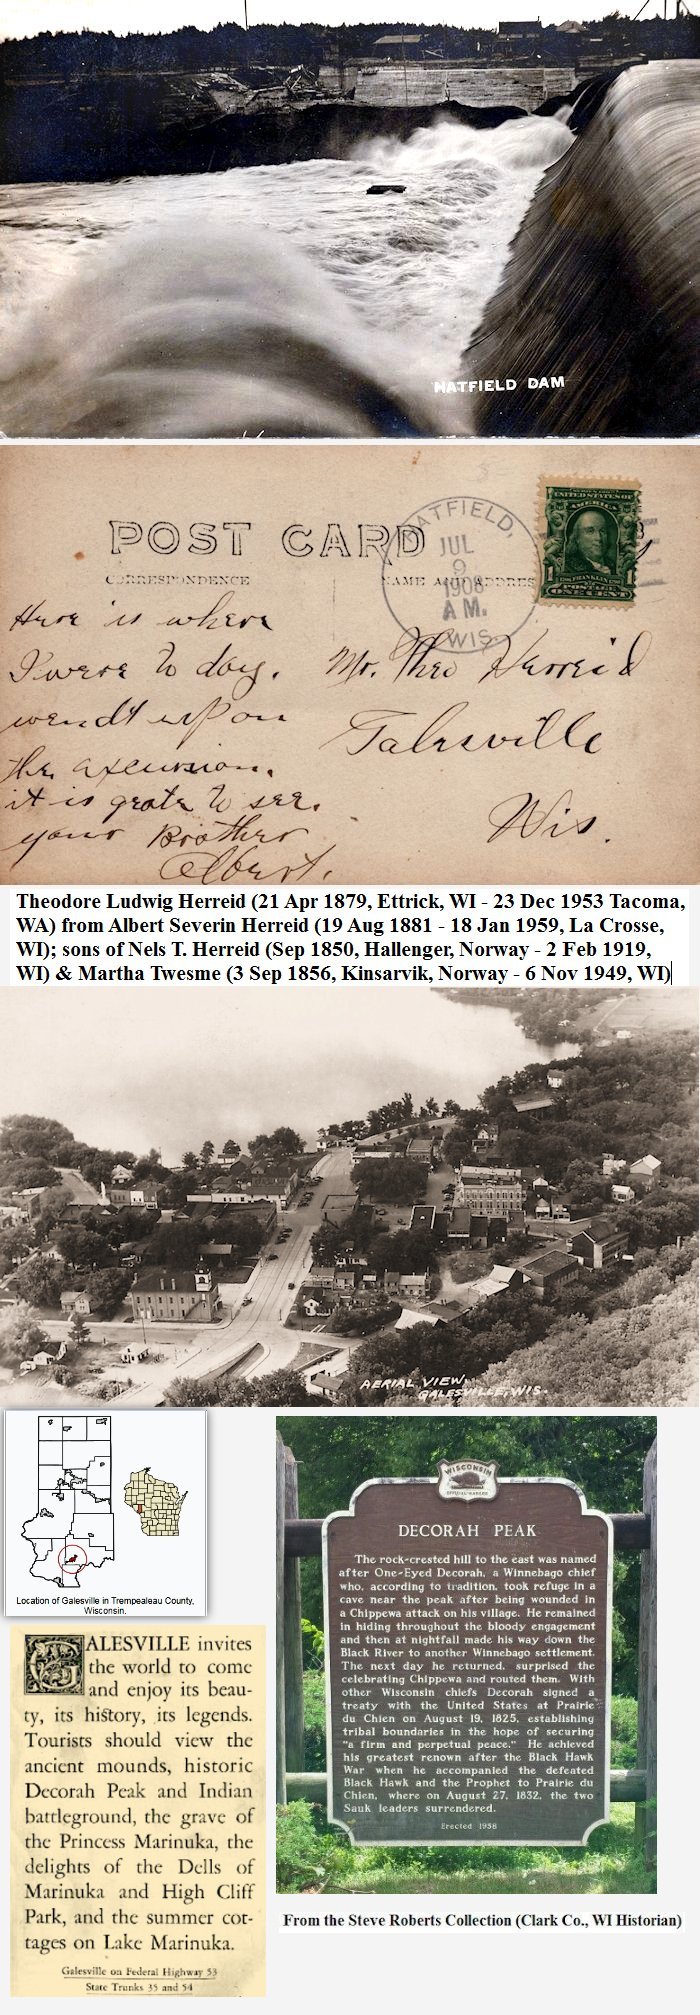 HATFIELD DAM
POST CARD
CORRESPONDENCE
NAME AND ADDRESS
HATFIELD,
JUL
9
1908
A M.
WIS.
SERIES 1902
UNITED STATES OF
AMERICA
1 FRANKLIN 1
POSTAGE
ONE CENT
Here is where
I were to day.
wendt up on
the axcursion.
it is grate to see.
your Brother
Albert.
Mr. Theo Herreid
Galesville
Wis.
Theodore Ludwig Herreid (21 Apr 1879, Ettrick, WI - 23 Dec 1953 Tacoma,
WA) from Albert Severin Herreid (19 Aug 1881 - 18 Jan 1959, La Crosse,
WI); sons of Nels T. Herreid (Sep 1850, Hallenger, Norway - 2 Feb 1919,
WI) & Martha Twesme (3 Sep 1856, Kinsarvik, Norway - 6 Nov 1949, WI)
AERIAL VIEW,
GALESVILLE, WIS.
Location of Galesville in Trempealeau County,
Wisconsin.
GALESVILLE invites
the world to come
and enjoy its beau-
ty, its history, its legends.
Tourists should view the
ancient mounds, historic
Decorah Peak and Indian
battleground, the grave of
the Princess Marinuka, the
delights of the Dells of
Marinuka and High Cliff
Park, and the summer cot-
tages on Lake Marinuka.
Galesville on Federal Highway 53
State Trunks 35 and 54
WISCONSIN
OFFICIAL MARKER
DECORAH PEAK
The rock-crested hill to the east was named
after One-Eyed Decorah, a Winnebago chief
who, according to tradition, took refuge in a
cave near the peak after being wounded in
a Chippewa attack on his village. He remained
in hiding throughout the bloody engagement
and then at nightfall made his way down the
Black River to another Winnebago settlement.
The next day he returned, surprised the
celebrating Chippewa and routed them. With
other Wisconsin chiefs Decorah signed a
treaty with the United States at Prairie
du Chien on August 19, 1825, establishing
tribal boundaries in the hope of securing
"a firm and perpetual peace." He achieved
his greatest renown after the Black Hawk
War when he accompanied the defeated
Black Hawk and the Prophet to Prairie du
Chien, where on August 27, 1832, the two
Sauk leaders surrendered.
Erected 1958
From the Steve Roberts Collection (Clark Co., WI Historian)